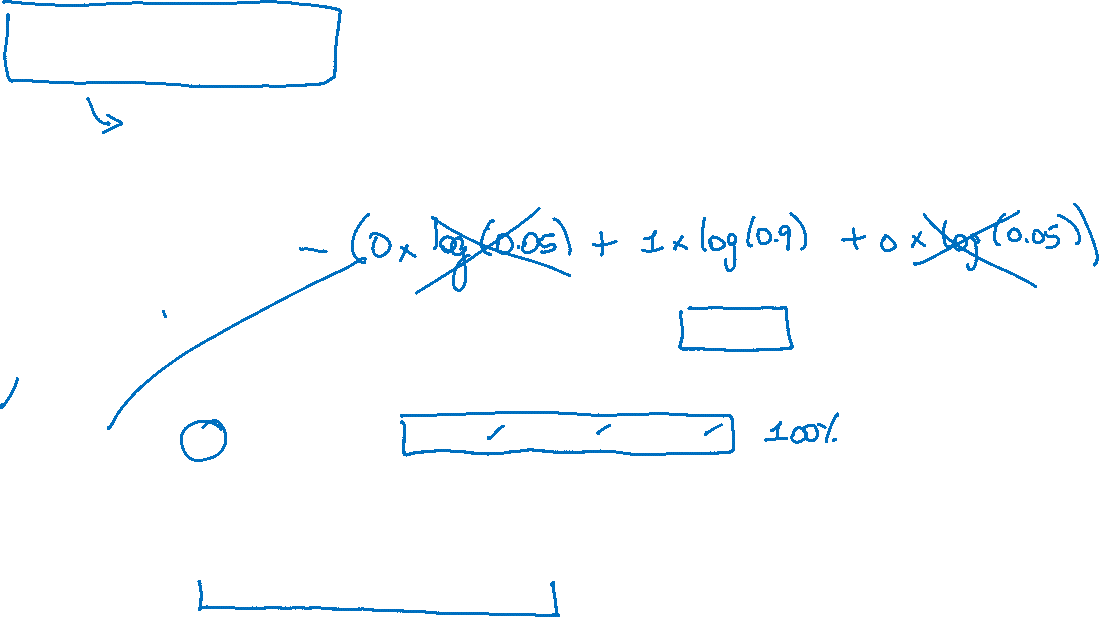 - (0 x log (0.05) + 1 x log (0.9) + 0 x log (0.05))
100%